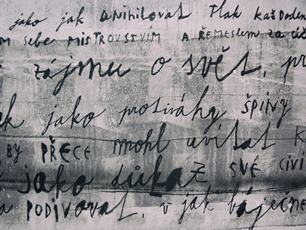 jako jak anihilovat tlak každoden
m sebe MISTROVSTVÍM A ŘEMESLEM za úč
zájmu o svět, pr
k jako protiváhy špíny
BY PŘECE mohl uvítat k
jako důkaz své civi
a PODIVOVAT, v jak báječné